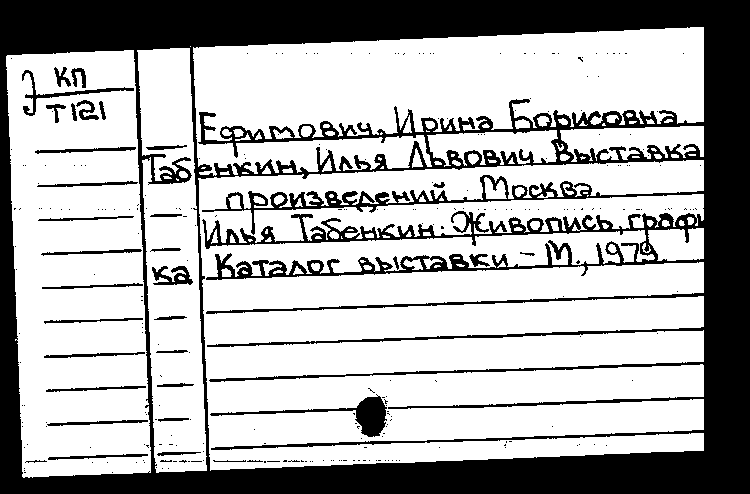 КП
Т121
Ефимович, Ирина Борисовна.
Табенкин, Илья Львович. Выставка
произведений. Москва.
Илья Табенкин: Живопись, графи
ка Каталог выставки. – М., 1979.